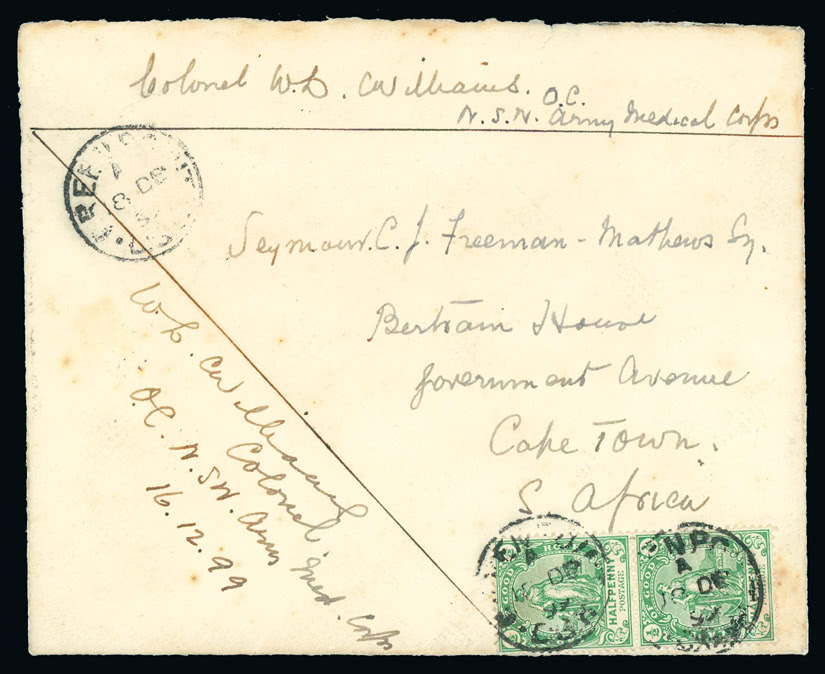 Colonel W. L. Williams. O.C.
N.S.W. Army Medical Corps
Seymour. C. J. Freeman-Mathews Esq.
Bertram House
Government Avenue
Cape Town.
S. Africa
W. L. Williams
Colonel
O.C. N.S.W. Army Med. Corps
16.12.99
A
DE
OF GOOD
HALFPENNY
POSTAGE
½
A
DE
OF GOOD
HALFPENNY
½